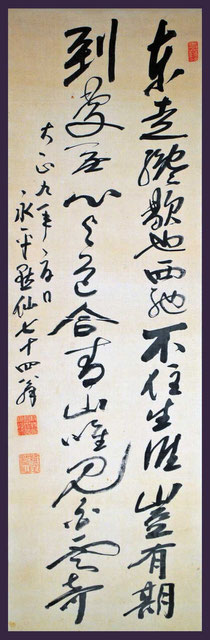 東走纔歇也西馳不住生涯豈有期
到處無心与道合青山唯見白雲奇
大正九年日
永平黙仙七十四翁